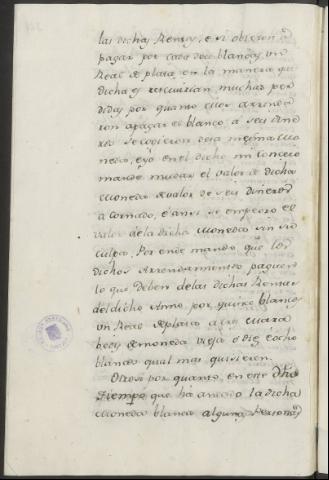 las dichas Rentas, e si obiesen á
pagar por cada doce blancas un
Real de plata, en la manera que
dicha es rescivirian muchas per
didas por quanto ellos arrenda
ron apagar el blanco a seis dine
ros se cogieron de la mesma mo
neda, e yo en el dicho mi consejo
mande mudar el valor de dicha
moneda a valor de seis dineros
a cornado, e ansi se empezo el
valor de la dicha moneda sin su
culpa, Por ende mando que los
dichos Arrendamientos paguen
lo que deben de las dichas Rentas
del dicho Anno por quince blancas
un Real de plata a tres mara
bedis de moneda vieja o diez e ocho
blancas qual mas quisieren.
Otrosi por quanto en este dho
tiempo que ha andado la dicha
moneda blanca algunas Personas